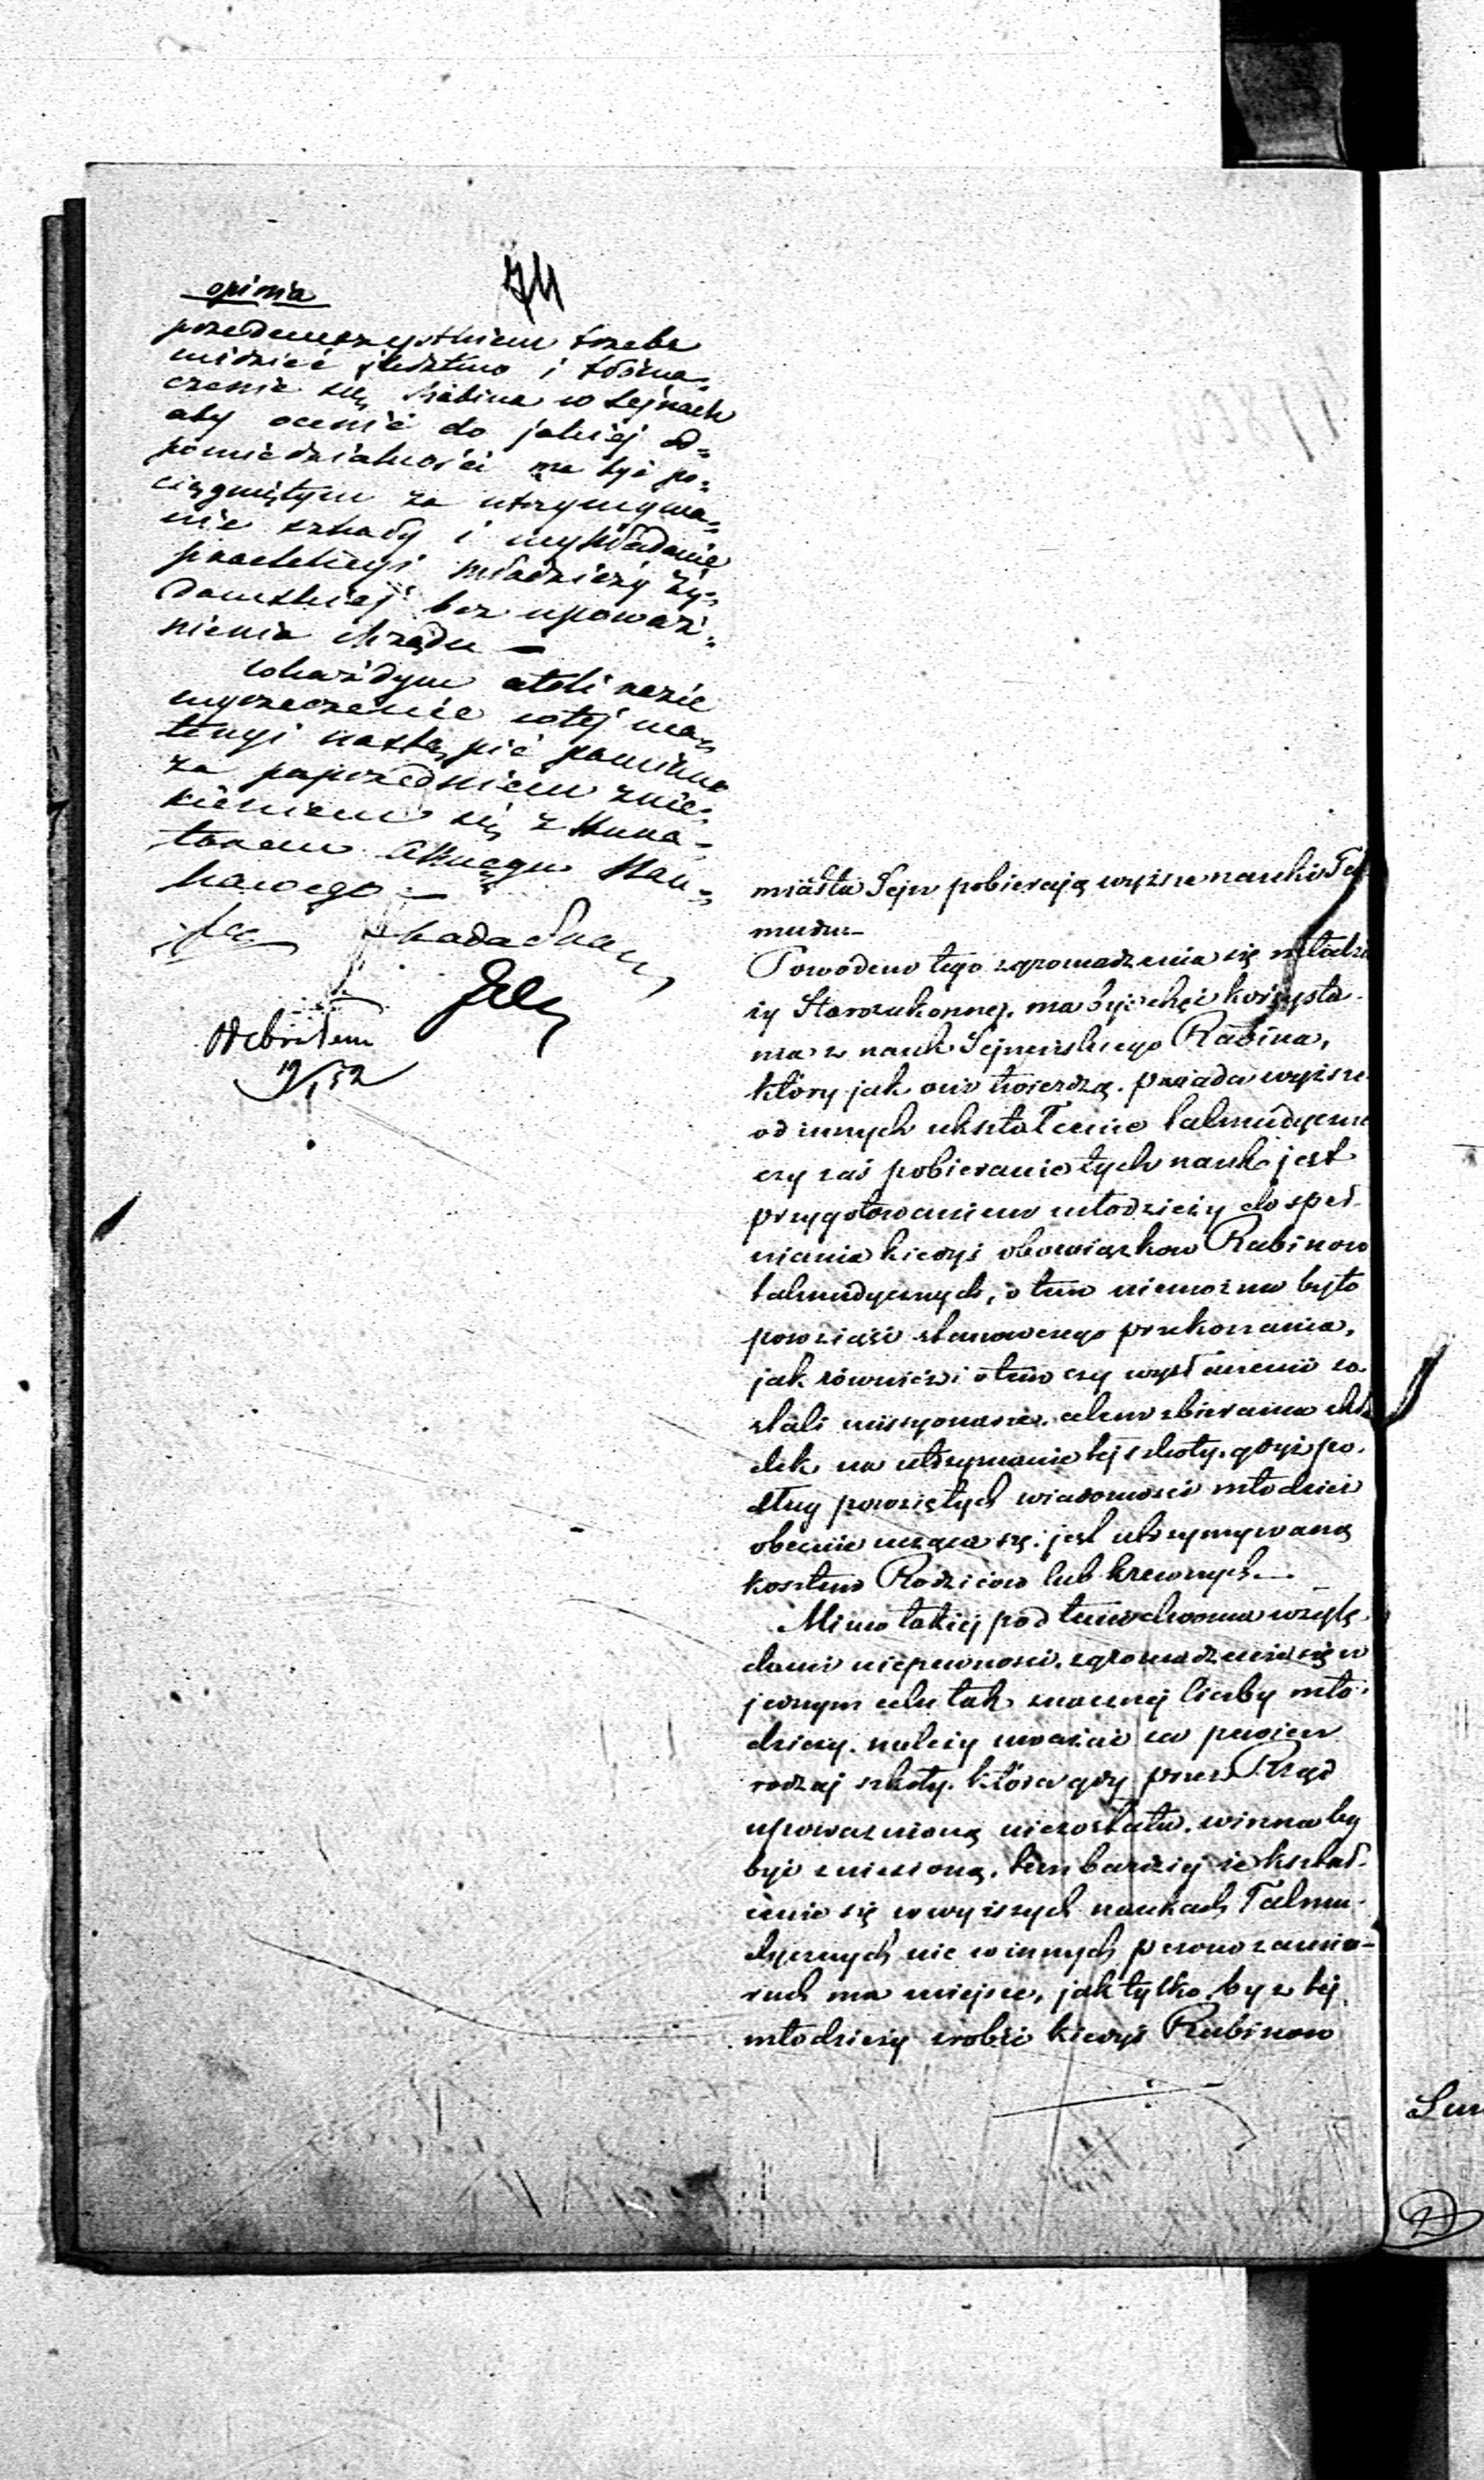 74
opinia
przedewszystkiem trzeba
widzieć śledztwo i tłóma=
czenie się Rabina w Sejnach
aby ocenić do jakiej od=
powiedzialności ma być po=
ciągniętym za utrzymywa=
nie szkoły i wykładanie
prelekcyi młodzieży ży=
dowskiej bez upoważ=
nienia Urzędu —
w każdym atoli razie
wyrzeczenie w tej ma=
teryi nastąpić powinno
za poprzedniem znie=
sieniem się z Kura=
torem Okręgu Nau=
kowego —
Odebrałem
19/1 52
miasta Sejn pobierają wyższe nauki Tal
mudu —
Powodem tego zgromadzenia się młodzie
ży Starozakonnej, ma być chęć korzysta
nia z nauk Sejneńskiego Rabina,
który jak oni twierdzą, posiada wyższe
od innych ukształcenie talmudyczne
czy zaś pobieranie tych nauk jest
przygotowaniem młodzieży do speł
niania kiedyś obowiązkow Rabinow
talmudycznych, o tem niemożna było
powziąść stanowczego przekonania,
jak również i o tem czy wysłanemi zo
stali missyonarze celem zbierania skła
dek na utrzymanie tej szkoły, gdyż po
dług powziętych wiadomości młodzież
obecnie ucząca się, jest utrzymywaną
kosztem Rodziców lub krewnych. —
Mimo takiej pod temi dwoma wzglę
dami niepewności, zgromadzenie się w
jednym celu tak znacznej liczby mło
dzieży, należy uważać za pewien
rodzaj szkoły, która gdy przez Rząd
upoważnioną niezostała, winna by
być zniesioną, tem bardziej że kształ
cenie się w wyższych naukach Talmu
dycznych nie w innych pewno zamia-
rach ma miejsce, jak tylko by z tej
młodzieży zrobić kiedyś Rabinow